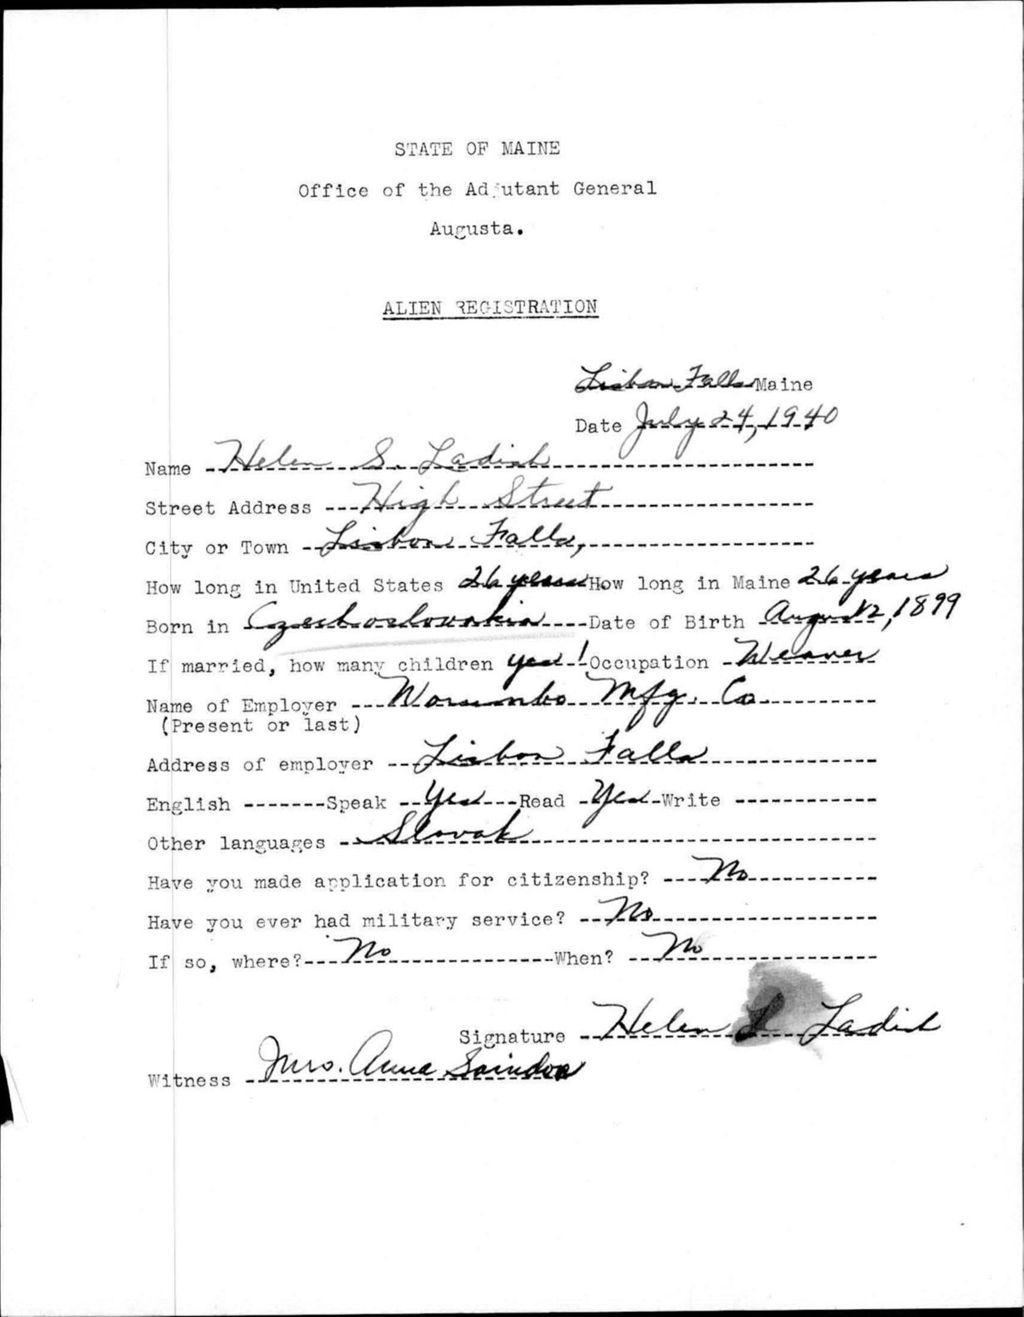 STATE OF MAINE
Office of the Adjutant General
Augusta.
ALIEN REGISTRATION
Lisbon Falls Maine
Date July 24, 1940
Name Helen S. Ladish
Street Address High Street
City or Town Lisbon Falls,
How long in United States 26 years How long in Maine 26 years
Born in Czechoslovakia Date of Birth Aug. 12, 1899
If married, how many children yes! Occupation Weaver
Name of Employer Worumbo Mfg. Co.
(Present or last)
Address of employer Lisbon Falls
English -------Speak Yes Read Yes Write
Other languages Slovak
Have you made application for citizenship? No
Have you ever had military service? No
If so, where? No When? No
Signature Helen S Ladish
Witness Mrs. Anna Saindon